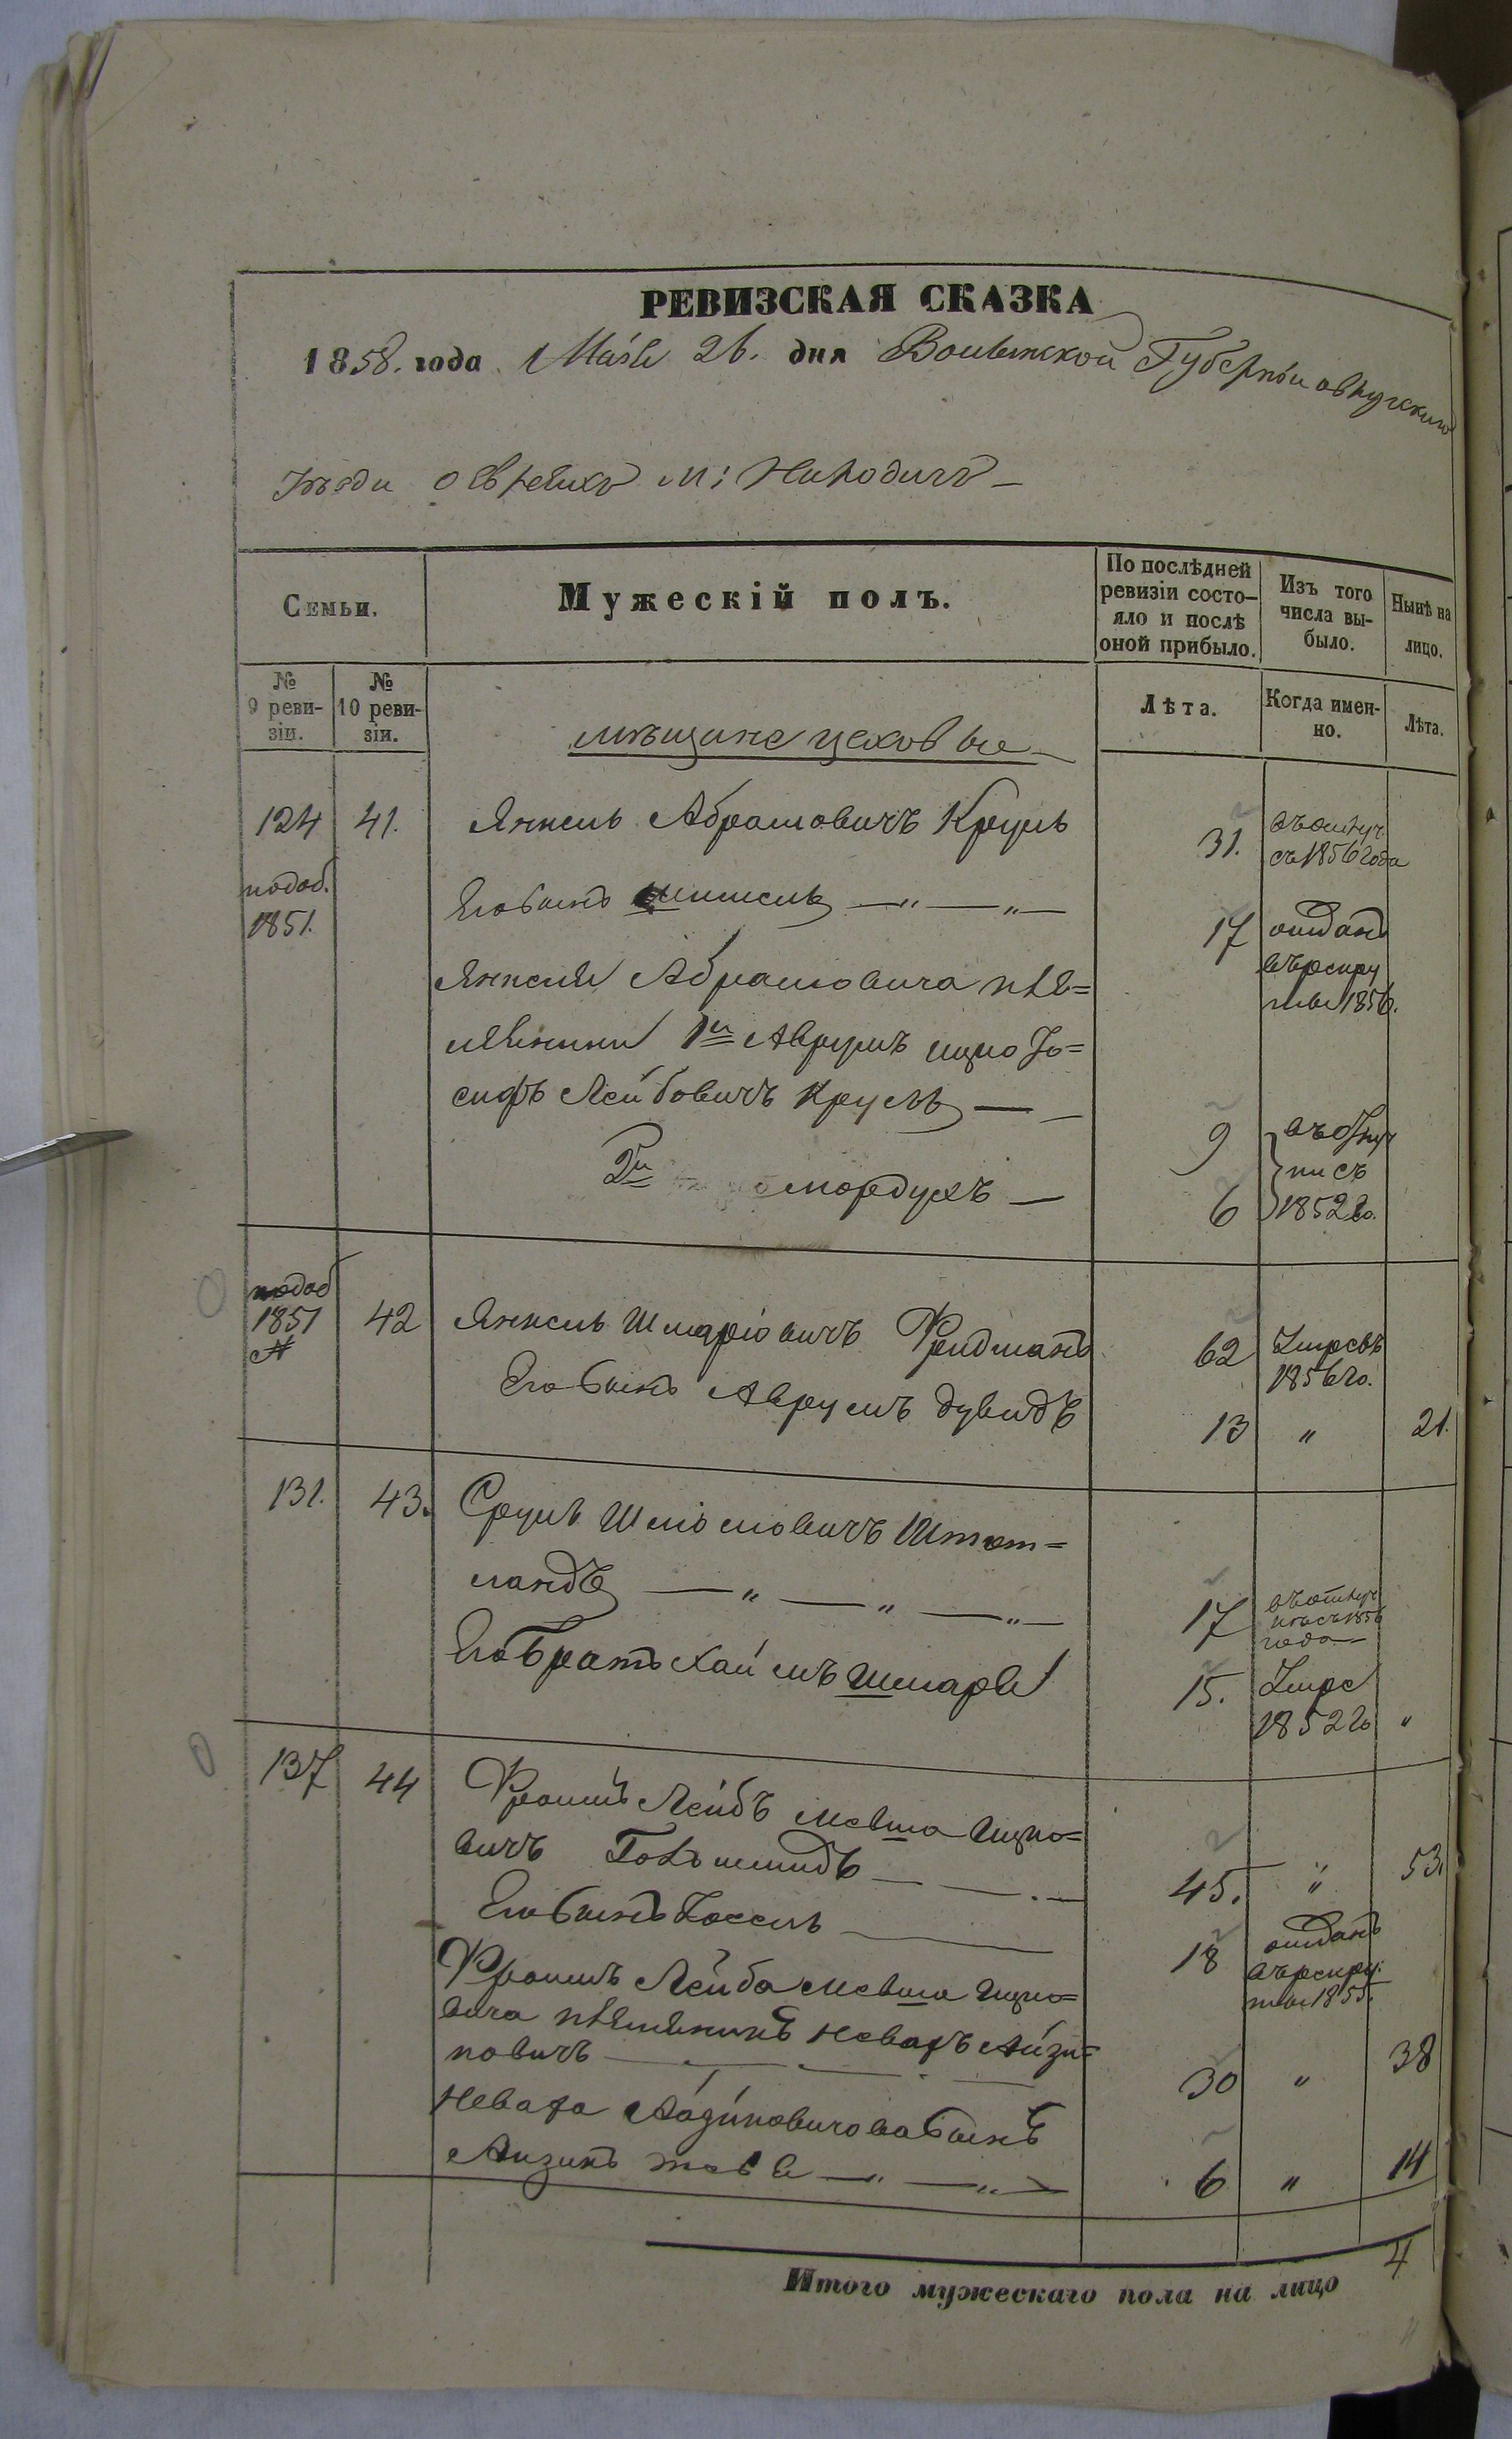 РЕВИЗСКАЯ СКАЗКА
1858. года Маія 26. дня Волынской Губерніи овручскаго
уѣзда о евреяхъ м: Народичъ
Семьи.
Мужескій полъ.
По послѣдней
ревизіи состо-
яло и послѣ
оной прибыло.
Изъ того
числа вы-
было.
Нынѣ на
лицо.
№
9 реви-
зіи.
№
10 реви-
зіи.
Лѣта.
Когда имен-
но.
Лѣта.
мѣщане цеховые
124 41. Янкель Абрамовичъ Круль 31.
съ 1856 года
1851.
Его сынъ 17 отданъ
въ рекру
ты 1856.
Янкеля Абрамовича плѣ=
мянники 1й Аврумъ ицко Іо=
сифъ Лейбовичъ Круль 9
2й мордухъ 6
1852 го.
1851 42 Янкель Шмаріовичъ Фридманъ 62 Умре въ
1856 го.
Его сынъ Аврумъ дувидъ 13 " 21.
131. 43. Сруль Шліомовичъ Штот=
ландъ — " — " — " — 17
года
Его братъ Хаимъ Шмаря 15. Умре
1852 го "
137 44 Фроимъ Лейбъ мевша Ицко=
вичъ 45. " 53.
Его сынъ Іоссель 18 отданъ
въ рекру
ты 1855.
Фроимъ Лейба мевша Ицко=
вича плѣмянникъ Невахъ Айзи=
ковичъ 30 " 38
Неваха Айзиковича сынъ
Айзикъ 6 " 14
4
Итого мужескаго пола на лицо